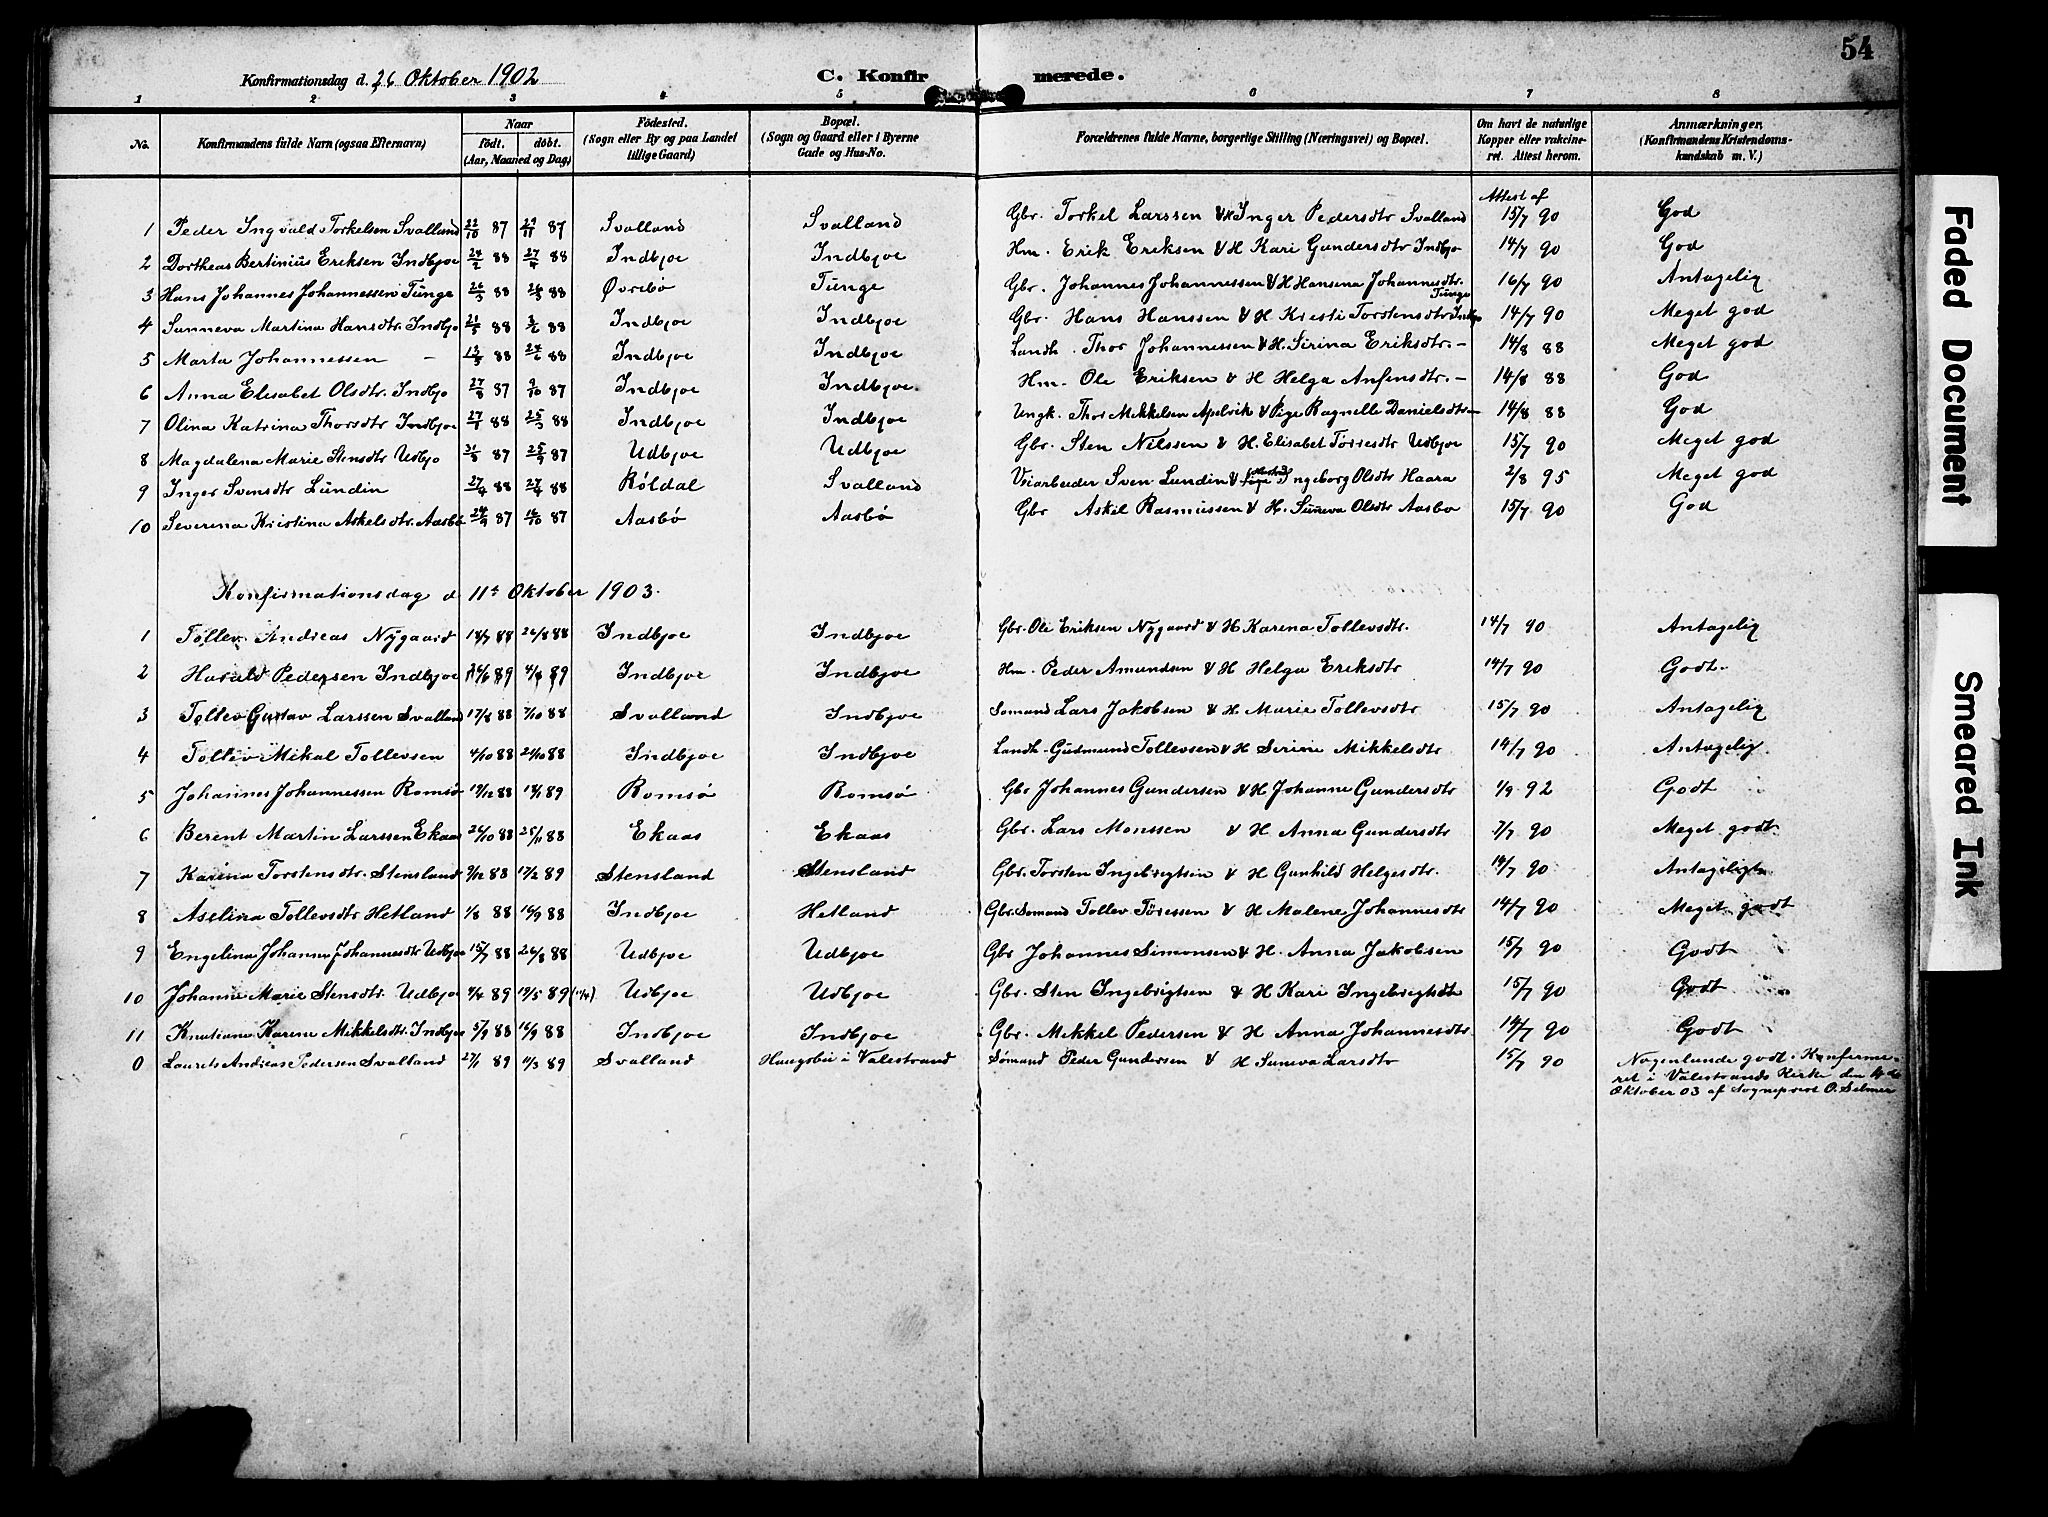 54
Konfirmationsdag d. 26 Oktober 1902
C. Konfirmerede.
1 2 3 4 5 6 7 8
No. Konfirmandens fulde Navn (ogsaa Efternavn) Naar født. døbt. (Aar, Maaned og Dag) Fødested. (Sogn eller By og paa Landet tillige Gaard) Bopæl. (Sogn og Gaard eller i Byerne Gade og Hus-No. Forældrenes fulde Navne, borgerlige Stilling (Næringsvei) og Bopæl. Om havt de naturlige Kopper eller vakcineret. Attest herom. Anmærkninger, (Konfirmandens Kristendomskundskab m. V.)
Attest af
1 Peder Ingvald Torkelsen Svalland 22/10 87 29/11 87 Svalland Svalland Gbr. Torkel Larssen & H Inger Pedersdtr Svalland 15/7 90 God
2 Dortheas Bertinius Eriksen Indbjoe 24/2 88 27/4 88 Indbjoe Indbjoe Hm. Erik Eriksen & H Kari Gundersdtr Indbjo 14/7 90 God
3 Hans Johannes Johannessen Tunge 26/3 88 26/5 88 Øvrebø Tunge Gbr. Johannes Johannessen & H Hansena Johannesdtr. Tunge 16/7 90 Antagelig
4 Sunneva Martina Hansdtr. Indbjo 21/5 88 3/6 88 Indbjoe Indbjoe Gbr. Hans Hanssen & H Kristi Torstensdtr Indbjo 14/7 90 Meget god
5 Marta Johannessen – 13/5 88 24/6 88 Indbjoe Indbjoe Landh. Thor Johannessen & H. Sirina Eriksdtr. – 14/8 88 Meget god
6 Anna Elisabet Olsdtr. Indbjo 27/8 87 9/10 87 Indbjoe Indbjoe. Hm. Ole Eriksen & H Helga Anfensdtr. – 14/8 88 God
7 Olina Katrina Thorsdtr Indbjoe 27/1 88 25/3 88 Indbjoe Indbjoe Ungk. Thor Mikkelsen Apelvik & Pige Ragnelle Danielsdtr – 14/8 88 God
8 Magdalena Marie Stensdtr Udbjo 31/8 87 25/9 87 Udbjoe Udbjoe Gbr. Sten Nilssen & H. Elisabet Torresdtr Udbjoe 15/7 90 Meget god
9 Inger Svensdtr Lundin 27/4 88 27/4 88 Röldal Svalland Veiarbeider Sven Lundin & Ingeborg Olsdtr Haara 2/8 95 Meget god
10 Severina Kristina Askelsdtr. Aasbø 24/9 87 16/10 87 Aasbø Aasbø Gbr Askil Rasmussen & H. Suneva Olsdtr Aasbo 15/7 90 God
Konfirmationsdag d 11te Oktober 1903.
1 Tollev Andreas Nygaard 18/7 88 26/8 88 Indbjoe Indbjoe Gbr. Ole Eriksen Nygaard & H Karena Tollevsdtr. 14/7 90 Antagelig
2 Harald Pedersen Indbjoe 89 89 Indbjoe Indbjoe Hm. Peder Amundsen & H Helga Eriksdtr 14/7 90 Godt.
3 Tollev Gustav Larssen Svalland 17/8 88 7/10 88 Svalland Indbjoe Sømand Lars Jakobsen & H. Marie Tollevsdtr 15/7 90 Antagelig
4 Tollev Mikal Tollevsen 4/10 88 21/10 88 Indbjoe Indbjoe Landh. Gudmund Tollevsen & H Serine Mikkelsdtr 14/7 90 Antagelig.
5 Johannes Johannessen Romsø 19/12 88 13/1 89 Romsø Romsø Gbr Johannes Gundersen & H Johanne Gundersdtr 1/9 92 Godt
6 Berent Martin Larssen Ekaas 26/10 88 25/11 88 Ekaas Ekaas Gbr. Lars Monssen & H Anna Gundersdtr 7/7 90 Meget godt
7 Karina Torstensdtr. Stensland 9/12 88 17/2 89 Stensland Stensland Gbr. Torsten Ingebrigtsen & H Gunhild Helgesdtr. 14/7 90 Antageligt
8 Aselina Tollevsdtr Hetland 1/8 88 16/9 88 Indbjoe Hetland Gbr. Sømand Tollev Tøressen & H Malene Johannesdtr 14/7 90 Meget godt
9 Engelina Johanna Johannesdtr Udbjoe 15/7 88 26/8 88 Udbjoe Udbjoe Gbr Johannes Simonsen & H. Anna Jakobsen 15/7 90 Godt
10 Johanne Marie Stensdtr. Udbjoe 9/4 89 19/5 89 Udbjoe Udbjoe Gbr. Sten Ingebrigtsen & H Kari Ingebrigtsdt 15/7 90 Godt
11 Knutiane Karine Mikkelsdtr. Indbjoe 5/9 88 16/9 88 Indbjoe Indbjoe Gbr. Mikkel Pedersen & H Anna Johannesdtr. 14/7 90 Godt
0 Laurets Andreas Pedersen Svalland 27/1 89 89 Svalland Haugsbø i Valestrand Sømand Peder Gundersen & H Suneva Larsdtr 15/7 90 Nogenlunde godt. Konfirme-
ret i Valestrands Kirke den 4de
Oktober 03 af Sogneprest O. Selmer
Faded Document
Smeared Ink